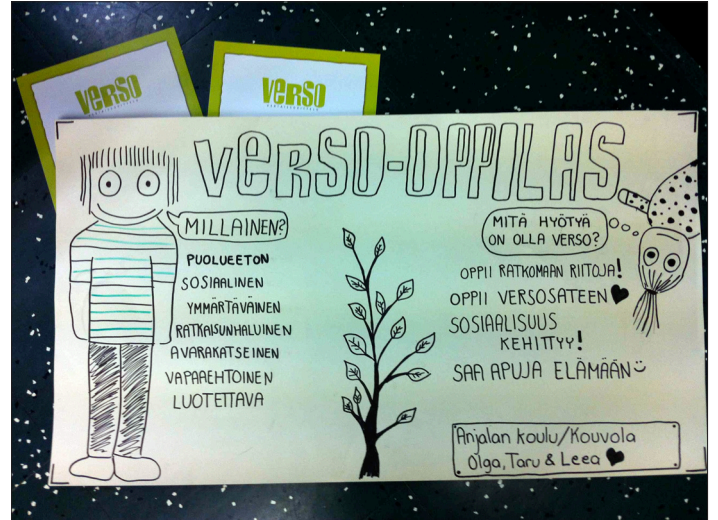 VERSO
VERSO
VERSO-OPPILAS
MILLAINEN?
PUOLUEETON
SOSIAALINEN
YMMÄRTÄVÄINEN
RATKAISUNHALUINEN
AVARAKATSEINEN
VAPAAEHTOINEN
LUOTETTAVA
MITÄ HYÖTYÄ
ON OLLA VERSO?
OPPII RATKOMAAN RIITOJA!
OPPII VERSOSATEEN ♥
SOSIAALISUUS
KEHITTYY!
SAA APUJA ELÄMÄÄN
Anjalan koulu/Kouvola
Olga, Taru & Leea ♥